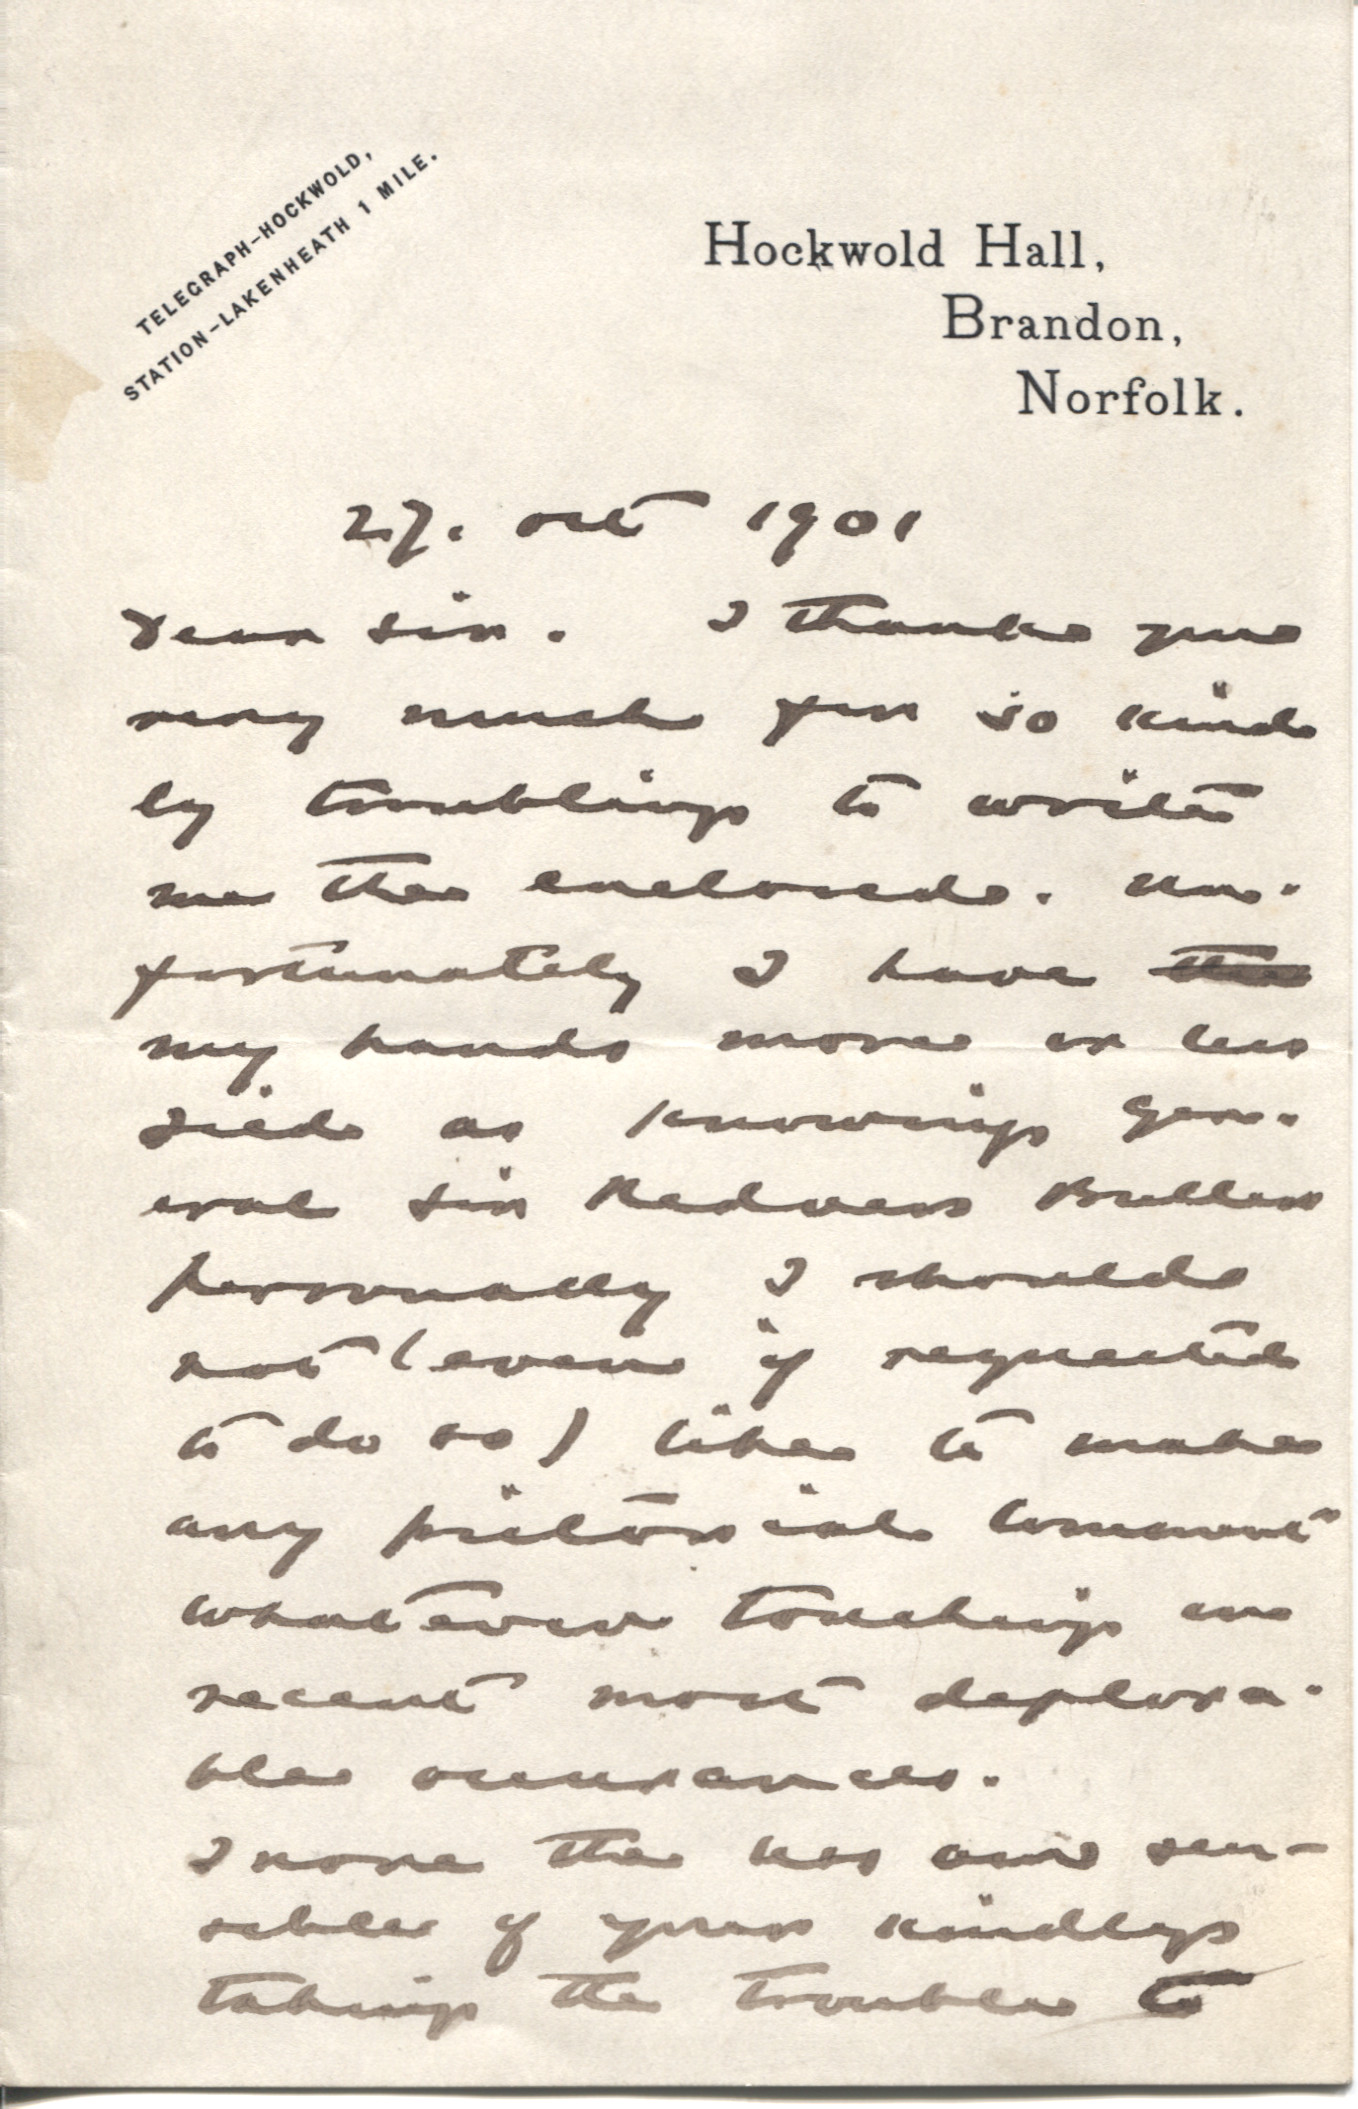 TELEGRAPH-HOCKWOLD,
STATION-LAKENHEATH 1 MILE.
Hockwold Hall,
Brandon,
Norfolk.
27. Oct 1901
Dear Sir. I thank you
very much for so kind
ly troubling to write
me the enclosed. Un-
fortunately I have the
my hands more or less
tied as knowing Gen-
eral Sir Redvers Buller
personally I should
not (even if requested
to do so) like to make
any pictorial comment
whatever touching on
recent most deplora-
ble occurances.
I none the less am sen-
sible of your kindly
taking the trouble to